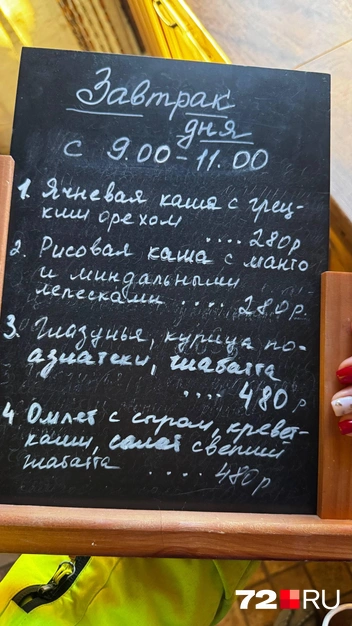 Завтрак
дня
с 9.00-11.00
1. Ячневая каша с грец-
ким орехом
.... 280р
2. Рисовая каша с манго
и миндальными
лепесками .... 280р.
3. Глазунья, курица по-
азиатски, чиабатта
.... 480р
4 Омлет с сыром, кревет-
ками, салат свежий
чиабатта .... 480р
72.RU